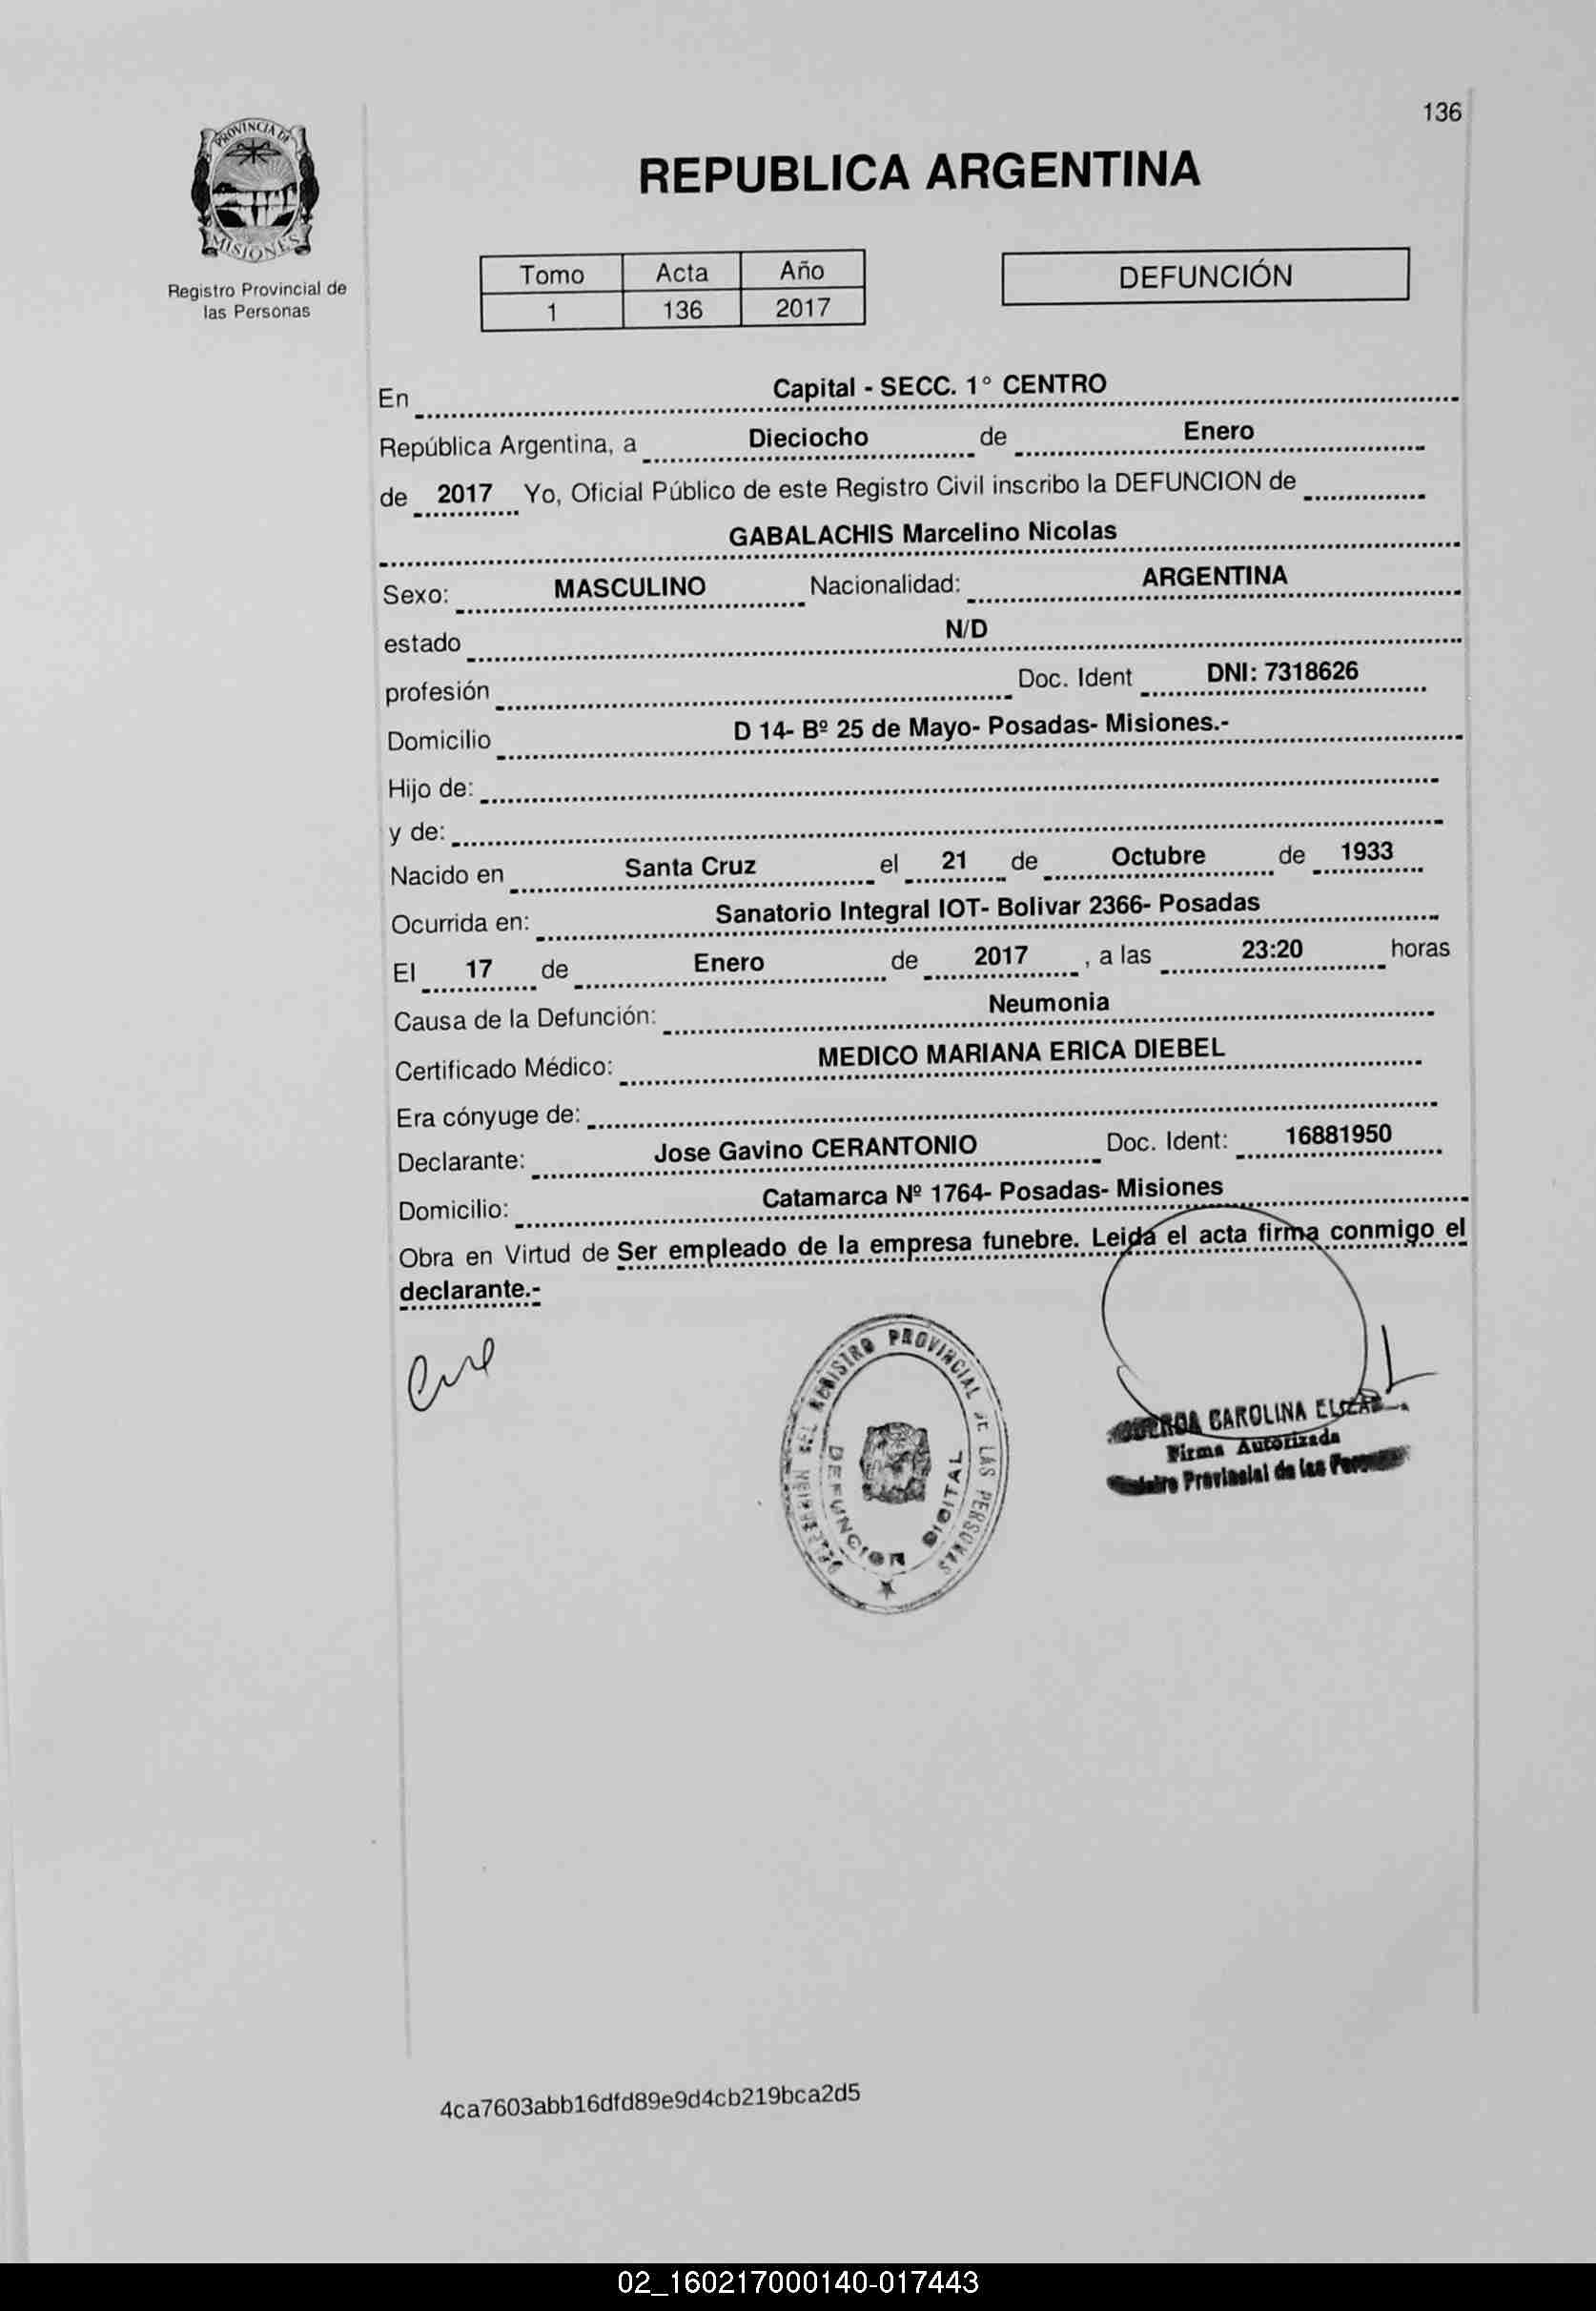 136
PROVINCIA DE
MISIONES
Registro Provincial de
las Personas
REPUBLICA ARGENTINA
Tomo Acta Año
1 136 2017
DEFUNCIÓN
En Capital - SECC. 1° CENTRO
República Argentina, a Dieciocho de Enero
de 2017 Yo, Oficial Público de este Registro Civil inscribo la DEFUNCION de
GABALACHIS Marcelino Nicolas
Sexo: MASCULINO Nacionalidad: ARGENTINA
estado N/D
profesión Doc. Ident DNI: 7318626
Domicilio D 14- Bº 25 de Mayo- Posadas- Misiones.-
Hijo de:
y de:
Nacido en Santa Cruz el 21 de Octubre de 1933
Ocurrida en: Sanatorio Integral IOT- Bolivar 2366- Posadas
El 17 de Enero de 2017 , a las 23:20 horas
Causa de la Defunción: Neumonia
Certificado Médico: MEDICO MARIANA ERICA DIEBEL
Era cónyuge de:
Declarante: Jose Gavino CERANTONIO Doc. Ident: 16881950
Domicilio: Catamarca Nº 1764- Posadas- Misiones
Obra en Virtud de Ser empleado de la empresa funebre. Leida el acta firma conmigo el
declarante.-
REGISTRO PROVINCIAL DE LAS PERSONAS
DEFUNCION DIGITAL
CAROLINA
Firma Autorizada
Provincial de las
4ca7603abb16dfd89e9d4cb219bca2d5
02_160217000140-017443